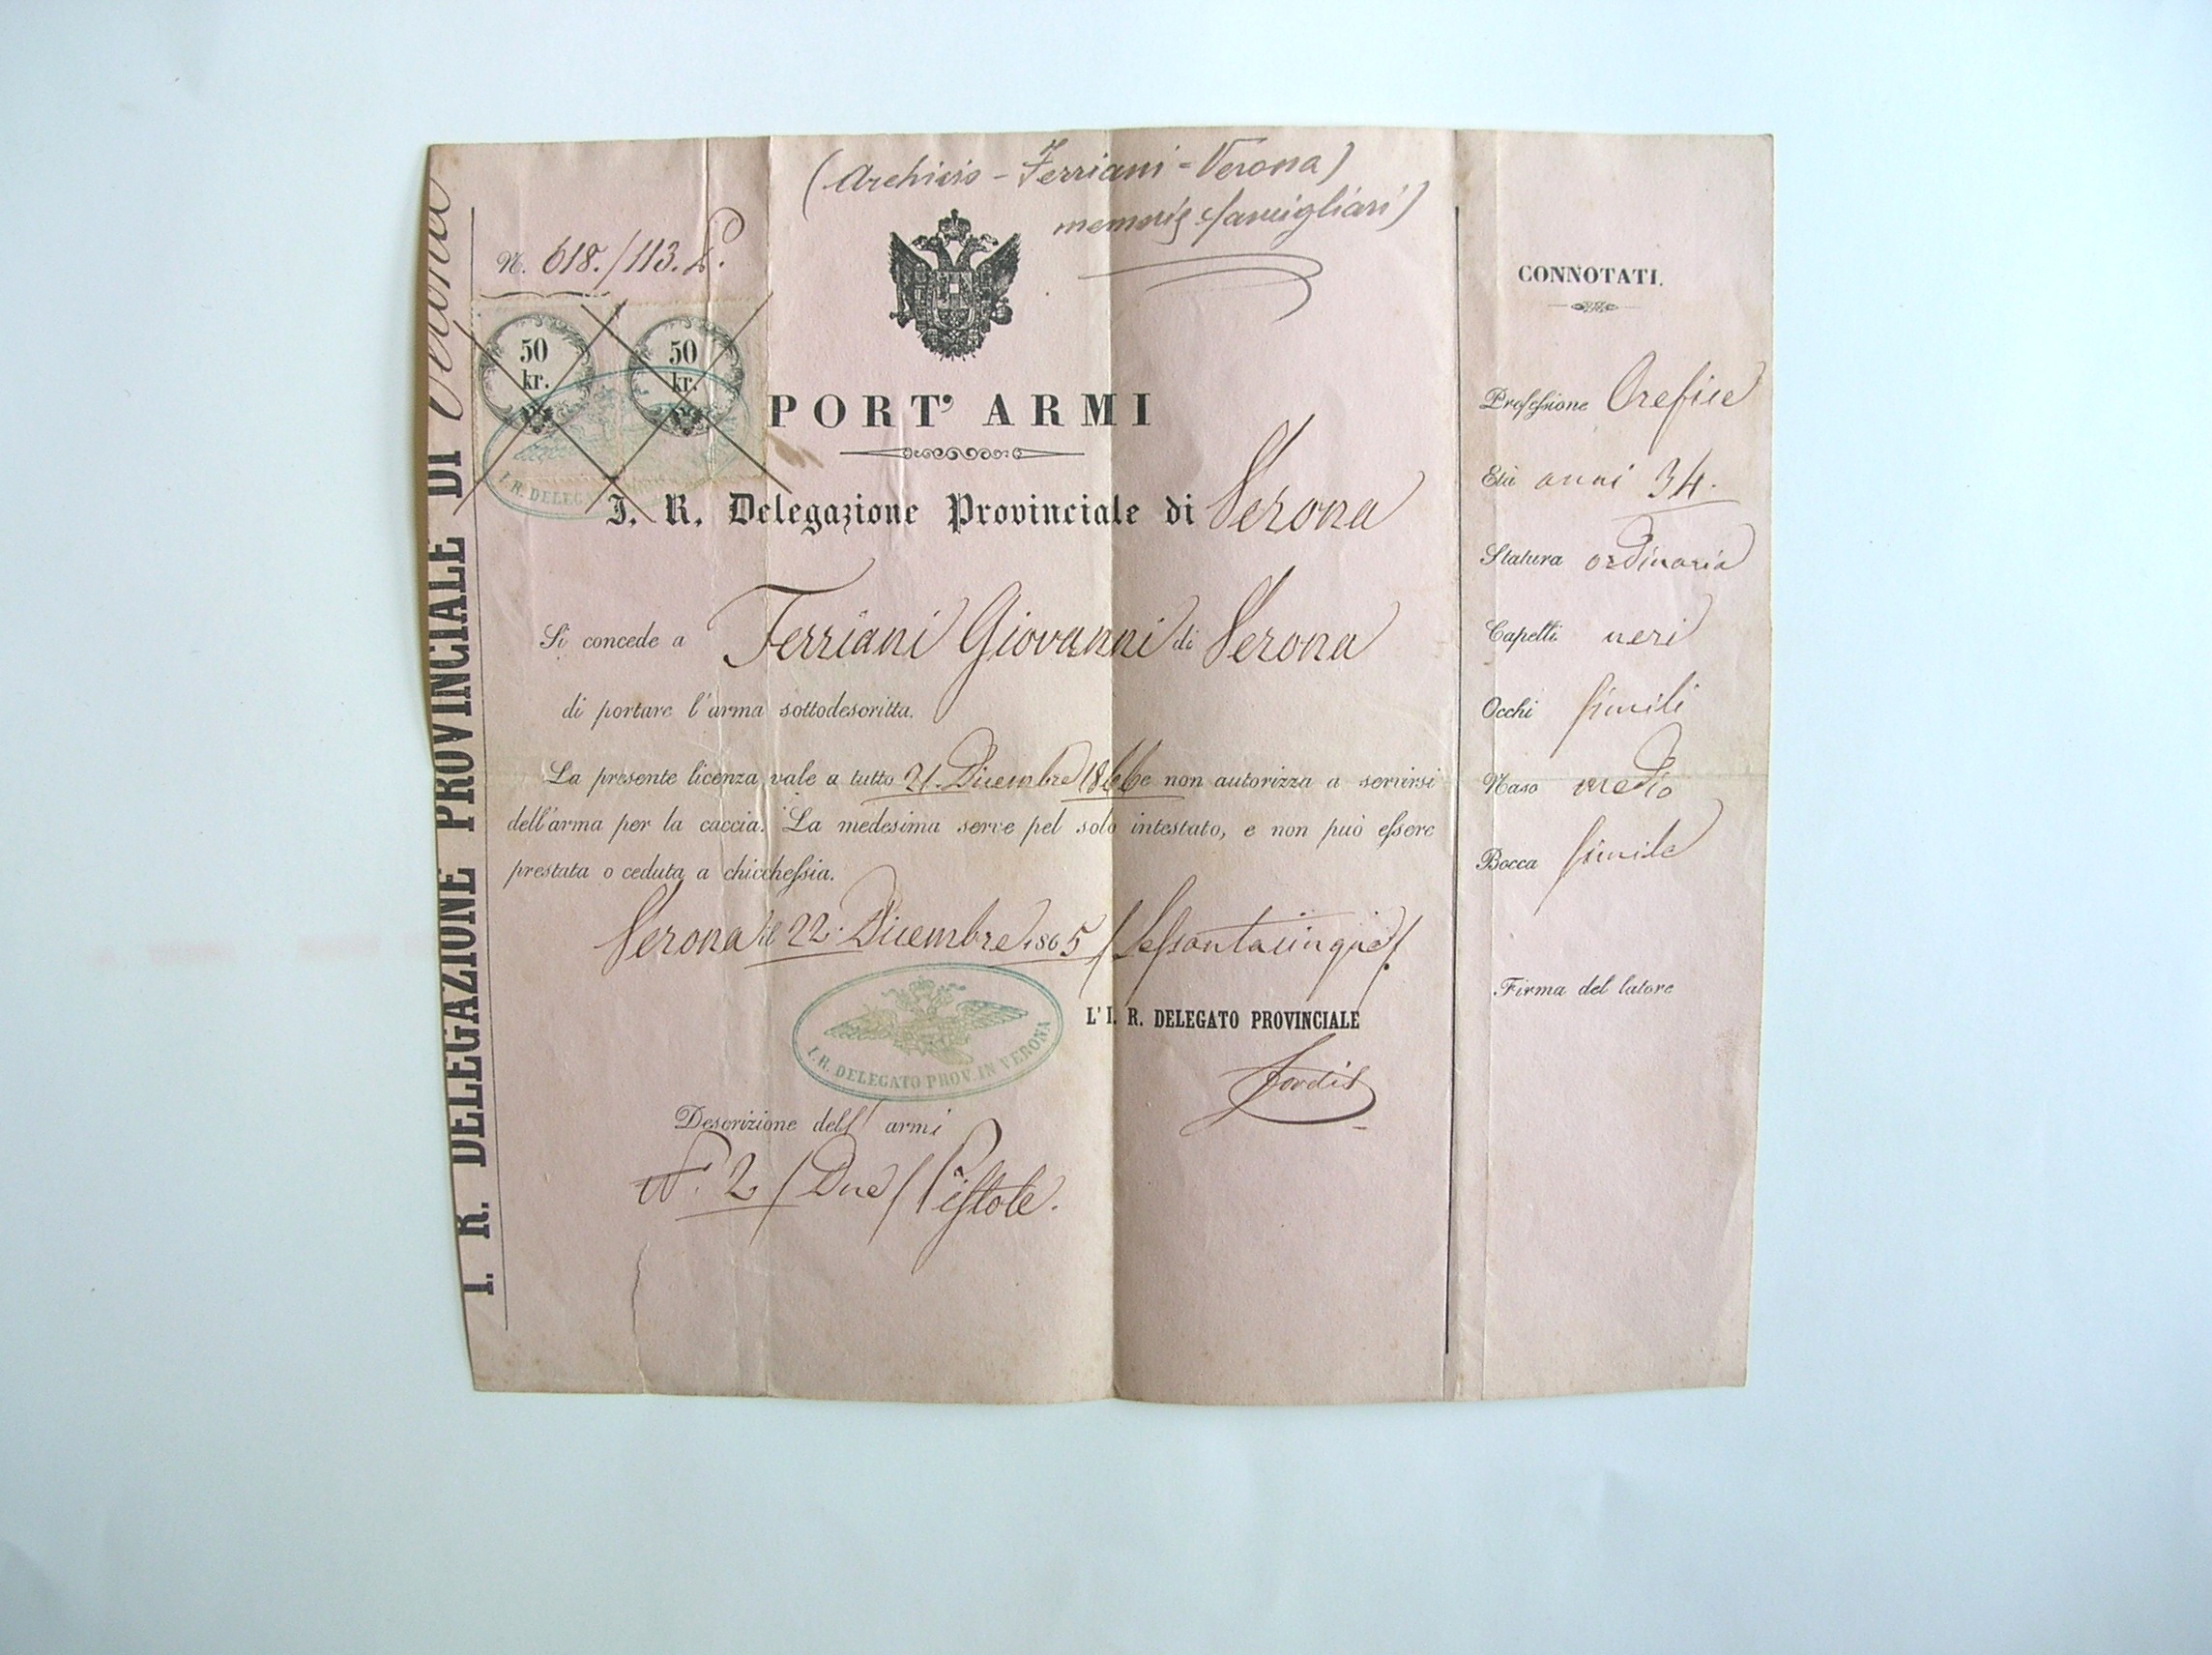 (Archivio - Ferriani = Verona)
memorie famigliari)
N. 618./113. P.
50
kr.
50
kr.
I. R. DELEGA
PORT' ARMI
I. R. Delegazione Provinciale di Verona
Si concede a Ferriani Giovanni di Verona
di portare l'arma sottodescritta.
La presente licenza vale a tutto 21. Dicembre 1866 e non autorizza a servirsi
dell'arma per la caccia. La medesima serve pel solo intestato, e non può eſsere
prestata o ceduta a chiccheſsia.
Verona il 22. Dicembre 1865 / Seſsantacinque /.
L' I. R. DELEGATO PROVINCIALE
I. R. DELEGATO PROV. IN VERONA
Descrizione dell' armi
N. 2 / Due / Pistole.
CONNOTATI.
Profeſsione Orefice
Età anni 34.
Statura ordinaria
Capelli neri
Occhi simili
Naso medio
Bocca simile
Firma del latore
I. R. DELEGAZIONE PROVINCIALE DI Verona